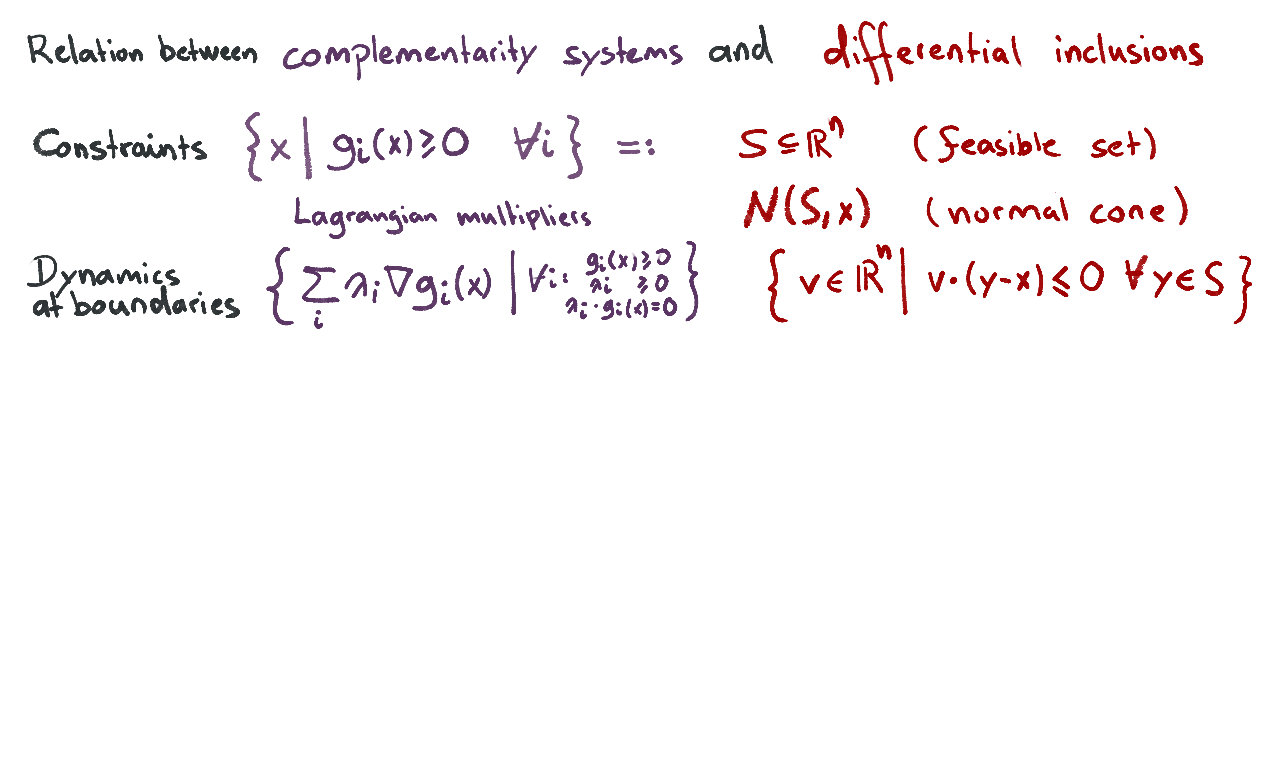 Relation between complementarity systems and differential inclusions
Constraints {x | gᵢ(x)≥0 ∀i} =: S⊆ℝⁿ (feasible set)
Lagrangian multipliers N(S,x) (normal cone)
Dynamics at boundaries {∑ᵢ λᵢ∇gᵢ(x) | ∀i: gᵢ(x)≥0 λᵢ≥0 λᵢ·gᵢ(x)=0} {v∈ℝⁿ | v·(y-x)≤0 ∀y∈S}